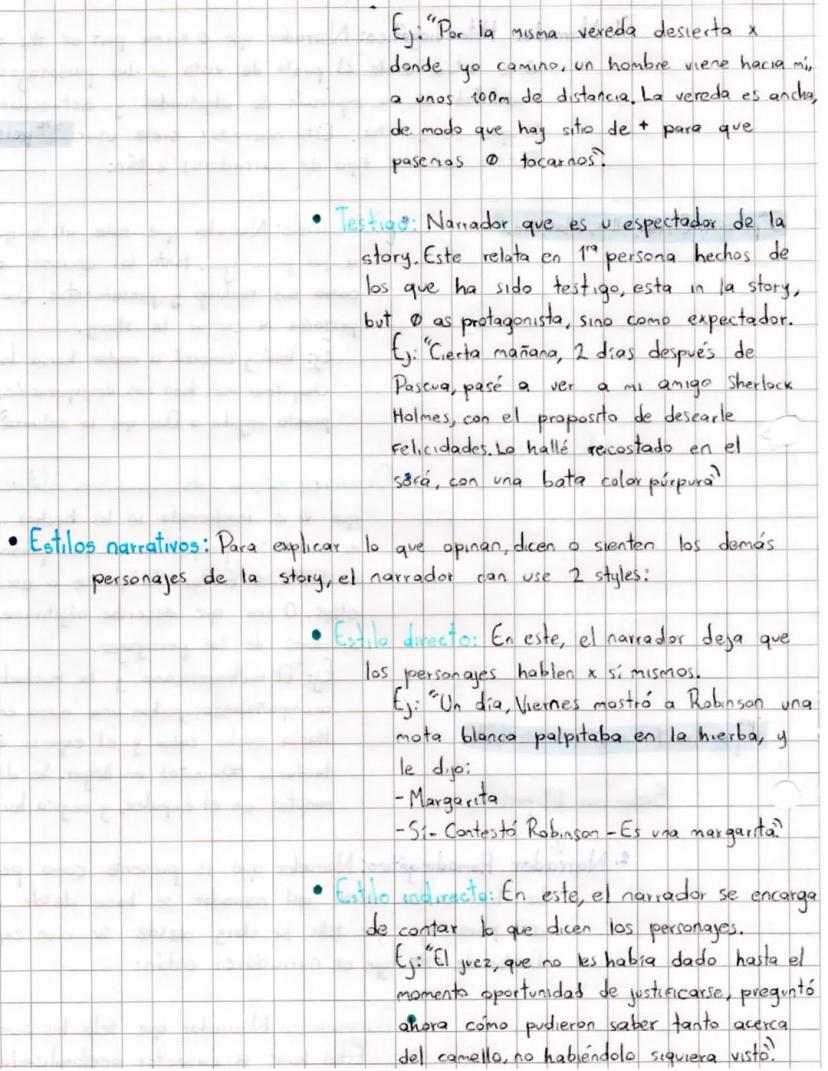 Ej: "Por la misma vereda desierta x
donde yo camino, un hombre viene hacia mí,
a unos 100m de distancia. La vereda es ancha,
de modo que hay sitio de + para que
pasemos Ø tocarnos".
• Testigo: Narrador que es u espectador de la
story. Este relata en 1ra persona hechos de
los que ha sido testigo, esta in la story,
but Ø as protagonista, sino como expectador.
Ej: "Cierta mañana, 2 días después de
Pascua, pasé a ver a mi amigo Sherlock
Holmes, con el proposito de desearle
felicidades. Lo hallé recostado en el
sofá, con una bata color púrpura"
• Estilos narrativos: Para explicar lo que opinan, dicen o sienten los demás
personajes de la story, el narrador can use 2 styles:
• Estilo directo: En este, el narrador deja que
los personajes hablen x sí mismos.
Ej: "Un día, Viernes mostró a Robinson una
mota blanca palpitaba en la hierba, y
le dijo:
- Margarita
- Sí - Contestó Robinson - Es una margarita".
• Estilo indirecto: En este, el narrador se encarga
de contar lo que dicen los personajes.
Ej: "El juez, que no les había dado hasta el
momento oportunidad de justificarse, preguntó
ahora cómo pudieron saber tanto acerca
del camello, no habiéndolo siquiera visto".